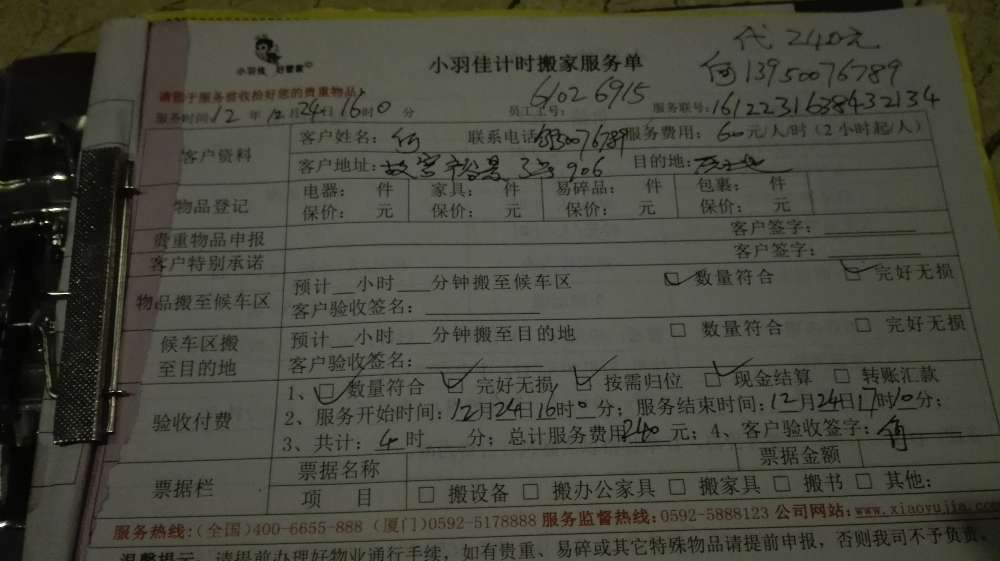 代 240元
小羽佳 好管家
小羽佳计时搬家服务单
何13950076789
请您于服务前收拾好您的贵重物品!
员工工号: 61026915
服务时间: 12 年 12 月 24 日 16 时 0 分
服务联号: 1612231638432134
客户资料
客户姓名: 何 联系电话: 服务费用: 60 元/人/时(2小时起/人)
客户地址: 故宫裕景 3号 906 目的地:
物品登记
电器: 件 家具: 件 易碎品: 件 包裹: 件
保价: 元 保价: 元 保价: 元 保价: 元
贵重物品申报 客户签字:
客户特别承诺 客户签字:
物品搬至候车区
预计__小时___分钟搬至候车区 数量符合 完好无损
客户验收签名:
候车区搬
至目的地
预计__小时___分钟搬至目的地 □ 数量符合 □ 完好无损
客户验收签名:
验收付费
1、 数量符合 完好无损 按需归位 现金结算 □ 转账汇款
2、服务开始时间: 12 月 24 日 16 时 0 分; 服务结束时间: 12 月 24 日 17 时 10 分;
3、共计: 4 时 分; 总计服务费用 240 元; 4、客户验收签字: 何
票据栏
票据名称 票据金额
项 目 □ 搬设备 □ 搬办公家具 □ 搬家具 □ 搬书 □ 其他:
服务热线:(全国)400-6655-888 (厦门)0592-5178888 服务监督热线:0592-5888123 公司网站:www.xiaoyujia.com
温馨提示 请提前办理好物业通行手续,如有贵重、易碎或其它特殊物品请提前申报,否则我司不予负责。